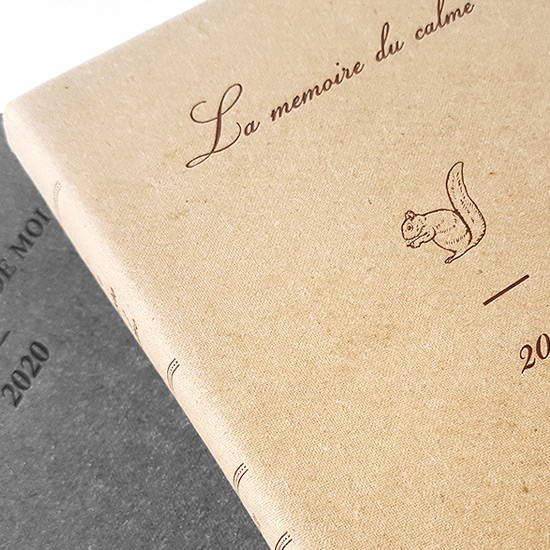 La memoire du calme
20
DE MOI
2020